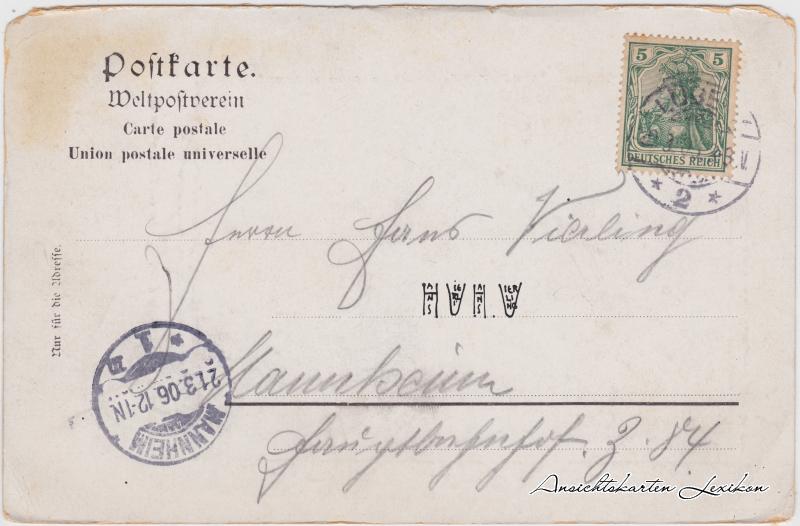 Postkarte.
Weltpostverein
Carte postale
Union postale universelle
5 5
DEUTSCHES REICH
LÜBE
* 2 *
Herrn Hans Vierling
HANS VIERLING
Mannheim
Hauptbahnhof. Z. 84
Nur für die Adresse.
MANNHEIM
21.3.06.12-1N
* 1 *
Ansichtskarten Lexikon